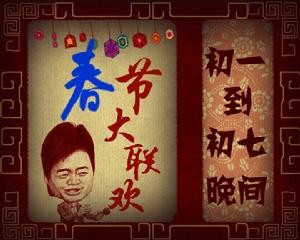 春节大联欢
初一
到
初七
晚间